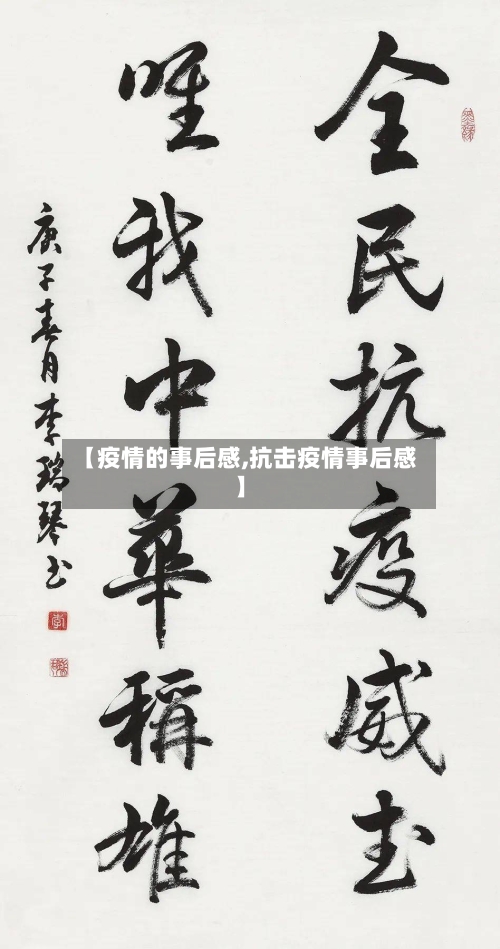 全民抗疫威武
唯我中華稱雄
庚子春月李瑞琴书
【疫情的事后感,抗击疫情事后感
】